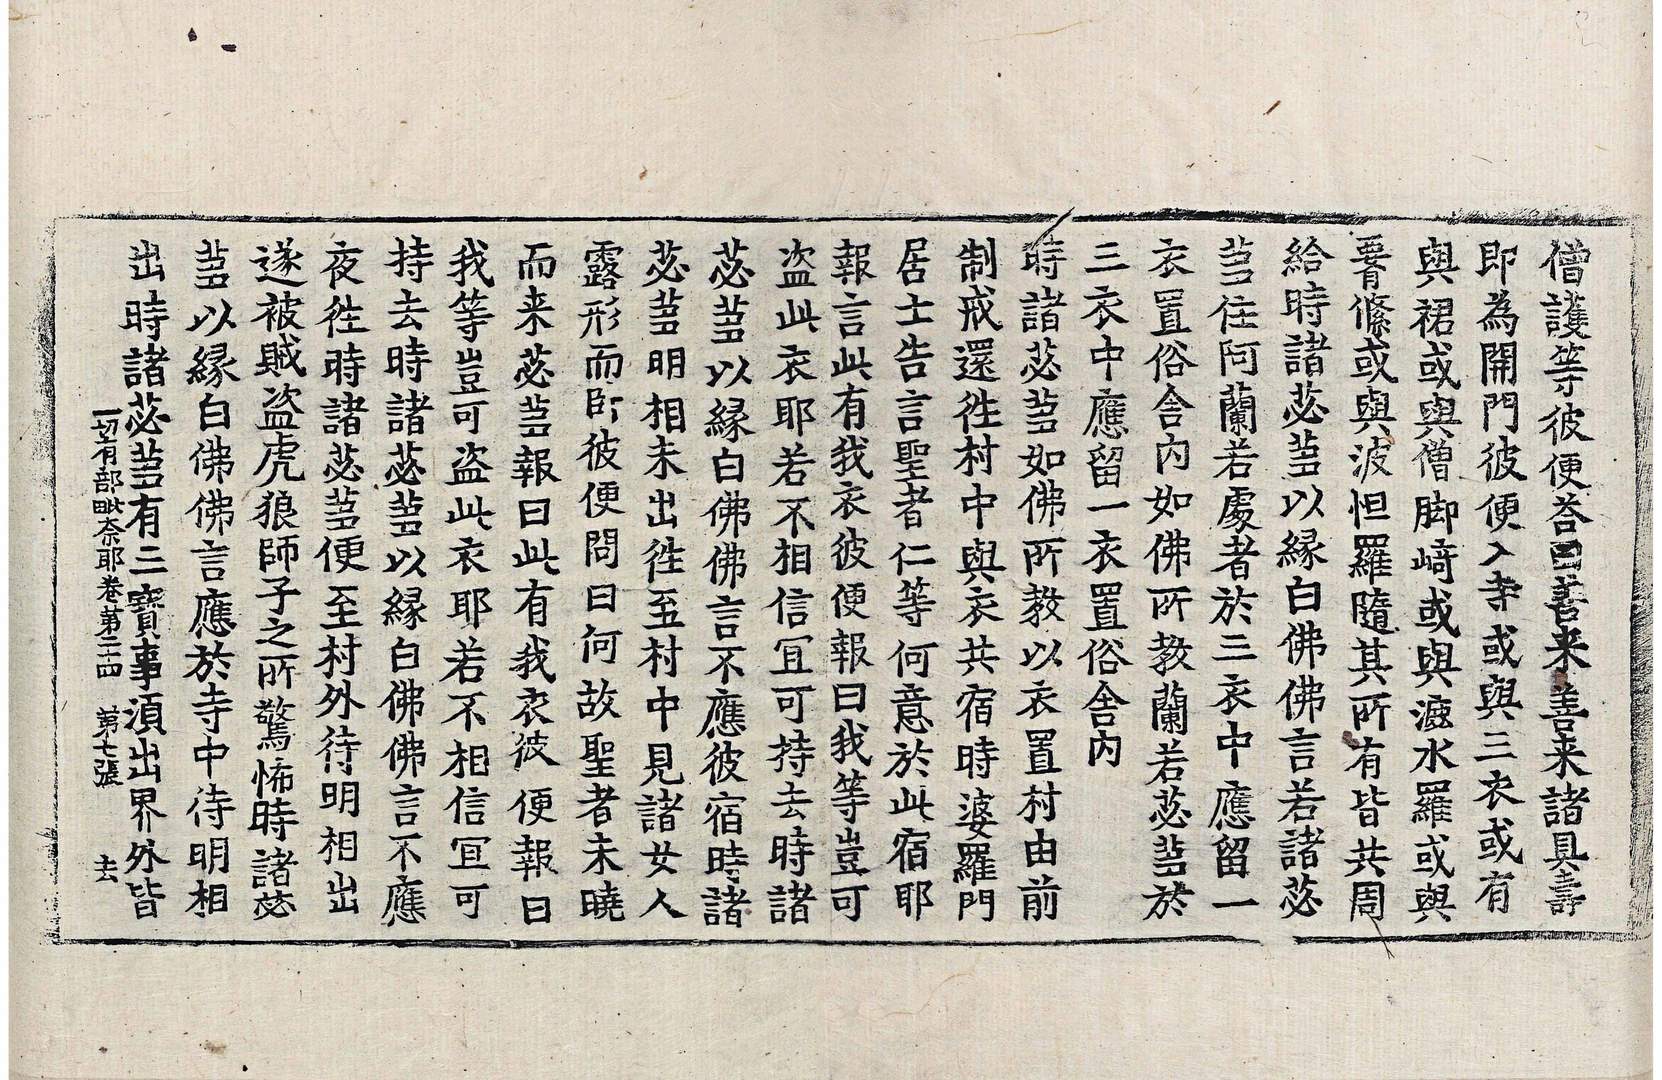 僧護等彼便荅曰善来善来諸具壽
即為開門彼便入寺或與三衣或有
與裙或與僧脚﨑或與漉水羅或與
𦝫絛或與波怛羅隨其所有皆共周
給時諸苾蒭以縁白佛佛言若諸苾
蒭住阿蘭若處者於三衣中應留一
衣置俗舎内如佛所教蘭若苾蒭於
三衣中應留一衣置俗舎内
時諸苾蒭如佛所教以衣置村由前
制戒還徃村中與衣共宿時婆羅門
居士告言聖者仁等何意於此宿耶
報言此有我衣彼便報曰我等豈可
盗此衣耶若不相信冝可持去時諸
苾蒭以縁白佛佛言不應彼宿時諸
苾蒭明相未出徃至村中見諸女人
露形而卧彼便問曰何故聖者未曉
而来苾蒭報曰此有我衣彼便報曰
我等豈可盗此衣耶若不相信冝可
持去時諸苾蒭以縁白佛佛言不應
夜徃時諸苾蒭便至村外待明相出
遂被賊盗虎狼師子之所驚怖時諸苾
蒭以縁白佛佛言應於寺中待明相
出時諸苾蒭有三寶事湏出界外皆
一切有部毗奈耶卷第二四 第七張 去